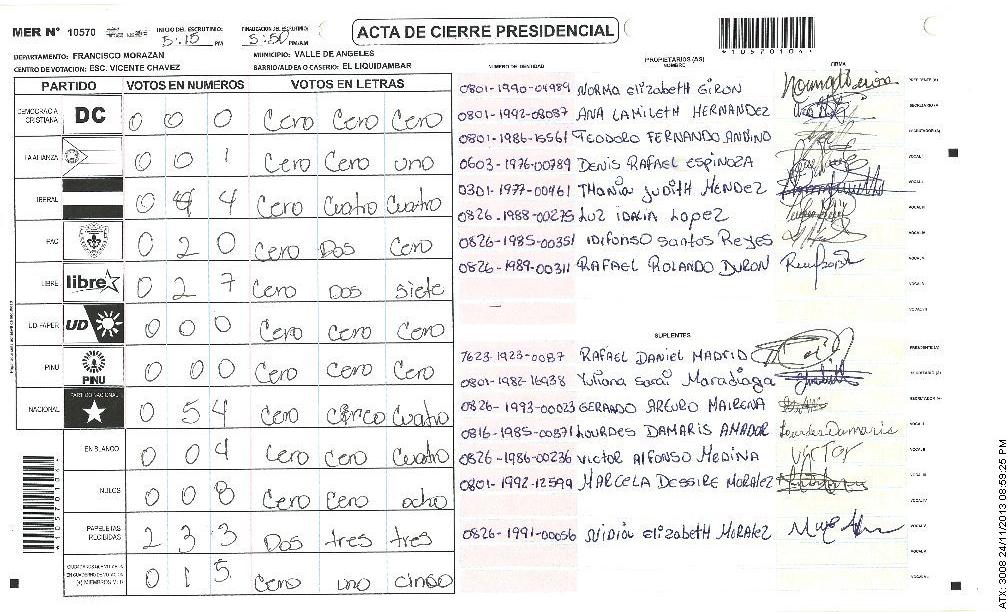 MER N° 10570 INICIO DEL ESCRUTINIO: 5:15 PM FINALIZACION DEL ESCRUTINIO: 5:50 PM/AM
ACTA DE CIERRE PRESIDENCIAL
DEPARTAMENTO: FRANCISCO MORAZAN MUNICIPIO: VALLE DE ANGELES
CENTRO DE VOTACION: ESC. VICENTE CHAVEZ BARRIO/ALDEA O CASERIO: EL LIQUIDAMBAR
PARTIDO VOTOS EN NUMEROS VOTOS EN LETRAS
DEMOCRACIA CRISTIANA DC 0 0 0 Cero Cero Cero
FAPER 0 0 1 Cero Cero uno
LIBERAL 0 4 4 Cero Cuatro Cuatro
PAC 0 2 0 Cero Dos Cero
LIBRE libre 0 2 7 Cero Dos siete
UD-FAPER UD 0 0 0 Cero Cero Cero
PINU PINU 0 0 0 Cero Cero Cero
NACIONAL PARTIDO NACIONAL 0 5 4 Cero Cinco Cuatro
EN BLANCO 0 0 4 Cero Cero Cuatro
NULOS 0 0 8 Cero Cero ocho
PAPELETAS RECIBIDAS 2 3 3 Dos tres tres
0 1 5 Cero uno cinco
PROPIETARIOS (AS)
NUMERO DE IDENTIDAD NOMBRE FIRMA
0801-1990-04989 NORMA Elizabeth GIRON
0801-1992-08087 ANA LAMILETH HERNANDEZ
0801-1986-15561 TEODORO FERNANDO ANDINO
0603-1976-00789 DENIS RAFAEL ESPINOZA
0301-1977-00461 Thania Judith MENDEZ
0826-1988-00275 LUZ IDALIA LOPEZ
0826-1985-00351 Idifonso Santos Reyes
0826-1989-00311 RAFAEL ROLANDO DURON
SUPLENTES
7623-1923-0087 RAFAEL DANIEL MADRID
0801-1982-16938 Yuliana Sarai Maradiaga
0826-1993-00023 GERARDO ARTURO MAIRENA
0816-1985-00371 LOURDES DAMARIS AMADOR Lourdes Damaris
0826-1986-00236 Victor Alfonso MEDINA VICTOR
0801-1992-12599 MARCELA DESSIRE MORALEZ
0826-1991-00056 NIDIA Elizabeth MORALEZ
10570104
ATX: 3008 24/11/2013 08:59:25 PM